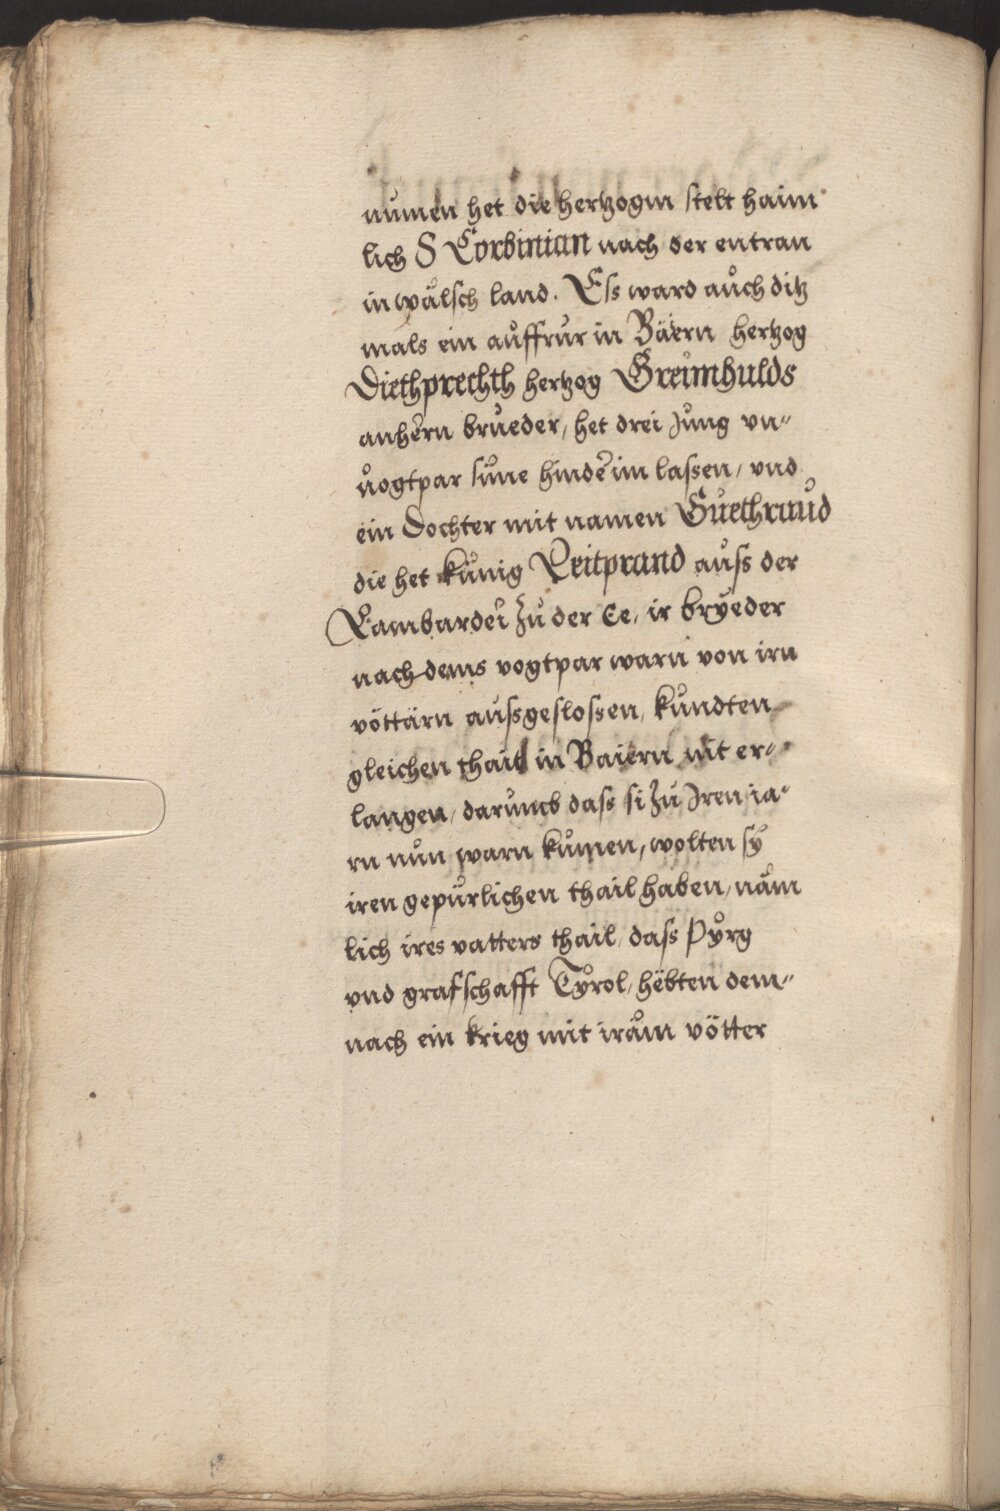 numen het die hertzogin stelt haim
lich S Corbinian nach der entran
in wälsch land. Ess ward aůch ditz
mals ein aůffrůr in Bäiern hertzog
Diethprechth hertzog Greimhulds
anhern brůeder, het drei Jůng vn⸗
ůogtpar sůne hinder im lassen, vnd
ein Dochter mit namen Gůethraud
die het kůnig Leitprand aůss der
Lambardei zů der Ee, ir bryeder
nach dems vogtpar warn von irn
vöttärn aůssgeslossen, kůndten
gleichen thail in Baiern nit er⸗
langen, darůmb dass si zů Iren ia⸗
rn nůn warn kůmen, wolten sy
iren gepůrlichen thail haben, nům
lich ires vatters thail, dass Půrg
vnd grafschafft Tyrol, hëbten dem⸗
nach ein krieg mit iråm vötter